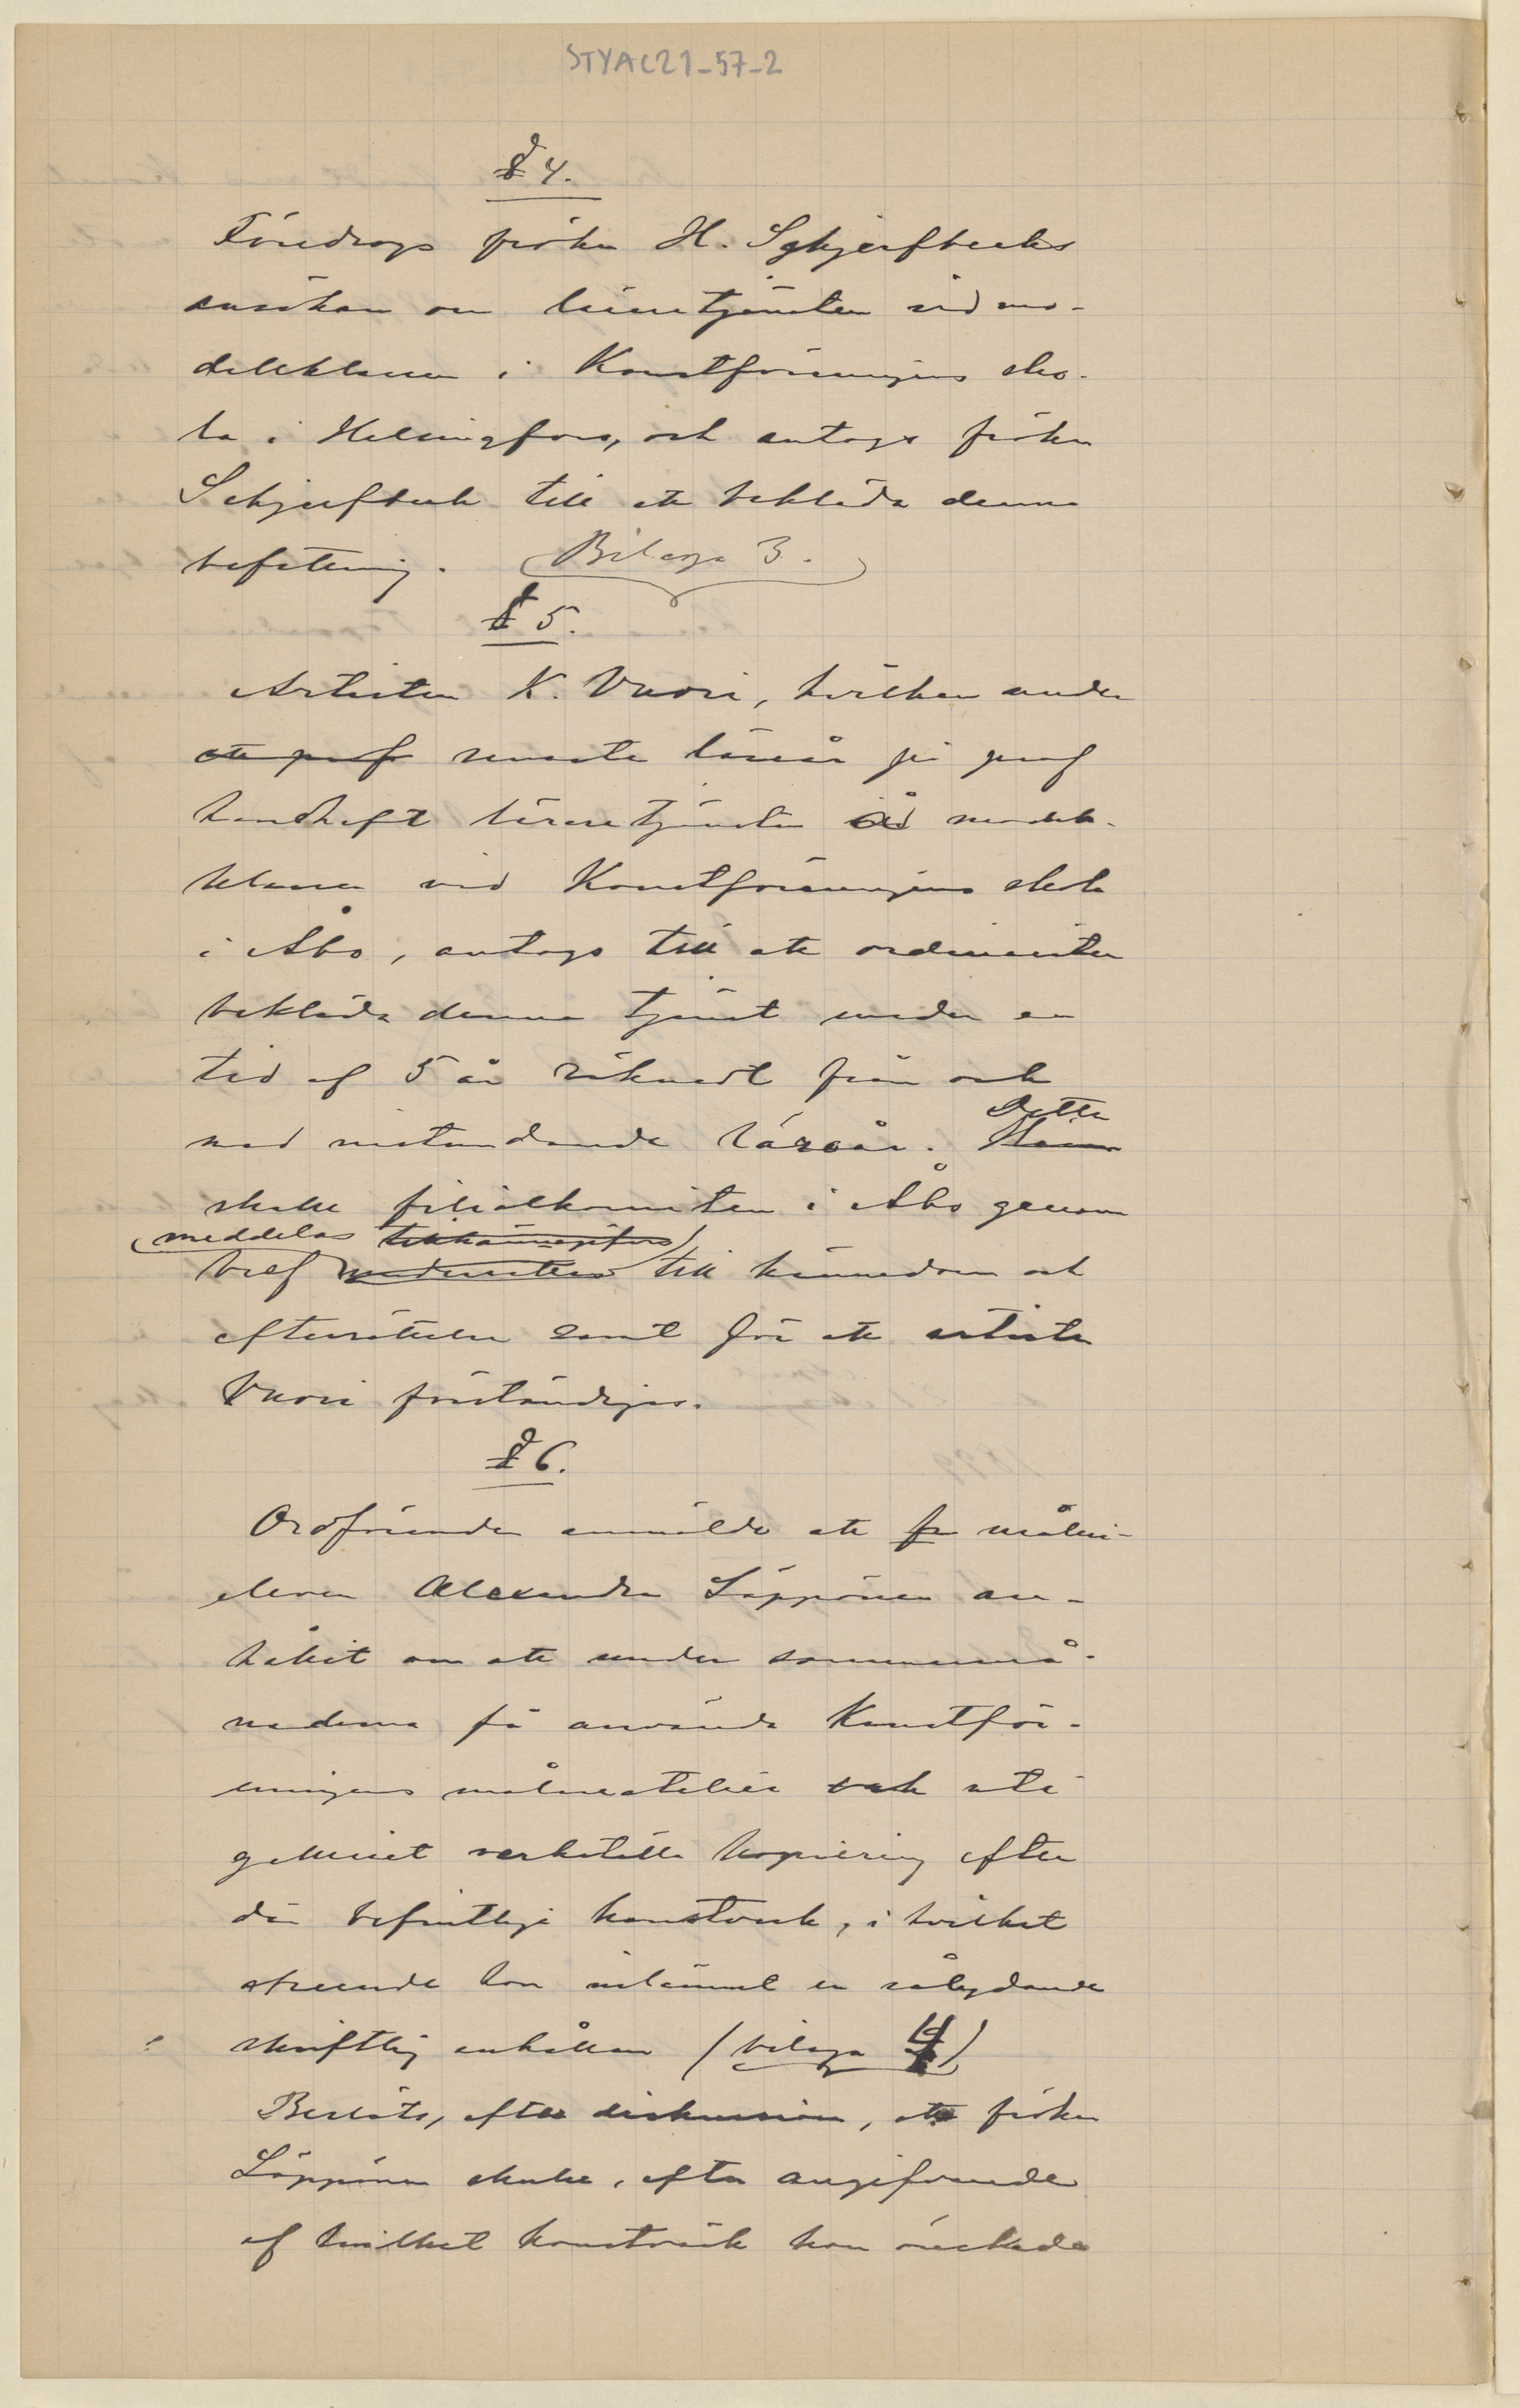 STYAC21-57-2
§ 4.
Föredrogs fröken H. Schjerfbecks
ansökan om läraretjänsten vid mo-
dellklassen i Konstföreningens sko-
la i Helsingfors, och antogs fröken
Schjerfbeck till att bekläda denna
befattning. (Bilaga 3.)
§ 5.
Artisten K. Vuori, hvilken under
att prof senaste läseår på prof
handhaft läraretjänsten vid modell-
klassen vid Konstföreningens skola
i Åbo, antogs till att ordinarie
bekläda denna tjänst under en
tid af 5 år räknadt från och
Detta
med instundande läseår.
skulle filialkomitén i Åbo genom
(meddelas tillkännagifvas)
bref till kännedom och
efterrättelse samt för att artisten
Vuori förständigas.
§ 6.
Ordföranden anmälde att fr målari-
eleven Alexandra Säppönen an-
hållit om att under sommarmå-
naderna få använda Konstför-
eningens målareatelier och uti
galleriet verkställa kopiering efter
där befintliga konstverk, i hvilket
afseende hon inlämnat en sålydande
skriftlig anhållan (bilaga 4)
Beslöts, efter diskussion, att fröken
Säppönen skulle, efter angifvande
af hvilket konstvärk hon önskade